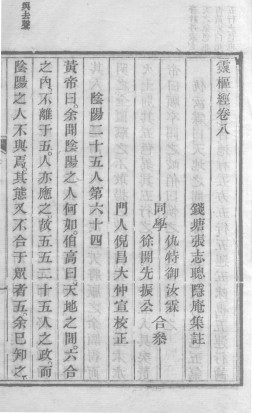 與去聲
靈樞經卷八
錢塘張志聰隱庵集註
同學
仇特御汝霖
徐開先振公
合叅
門人倪昌大仲宣校正
陰陽二十五人第六十四
黃帝曰余聞陰陽之人何如伯高曰天地之間六合
之內不離于五人亦應之故五五二十五人之政而
陰陽之人不與焉其態又不合于眾者五余已知之